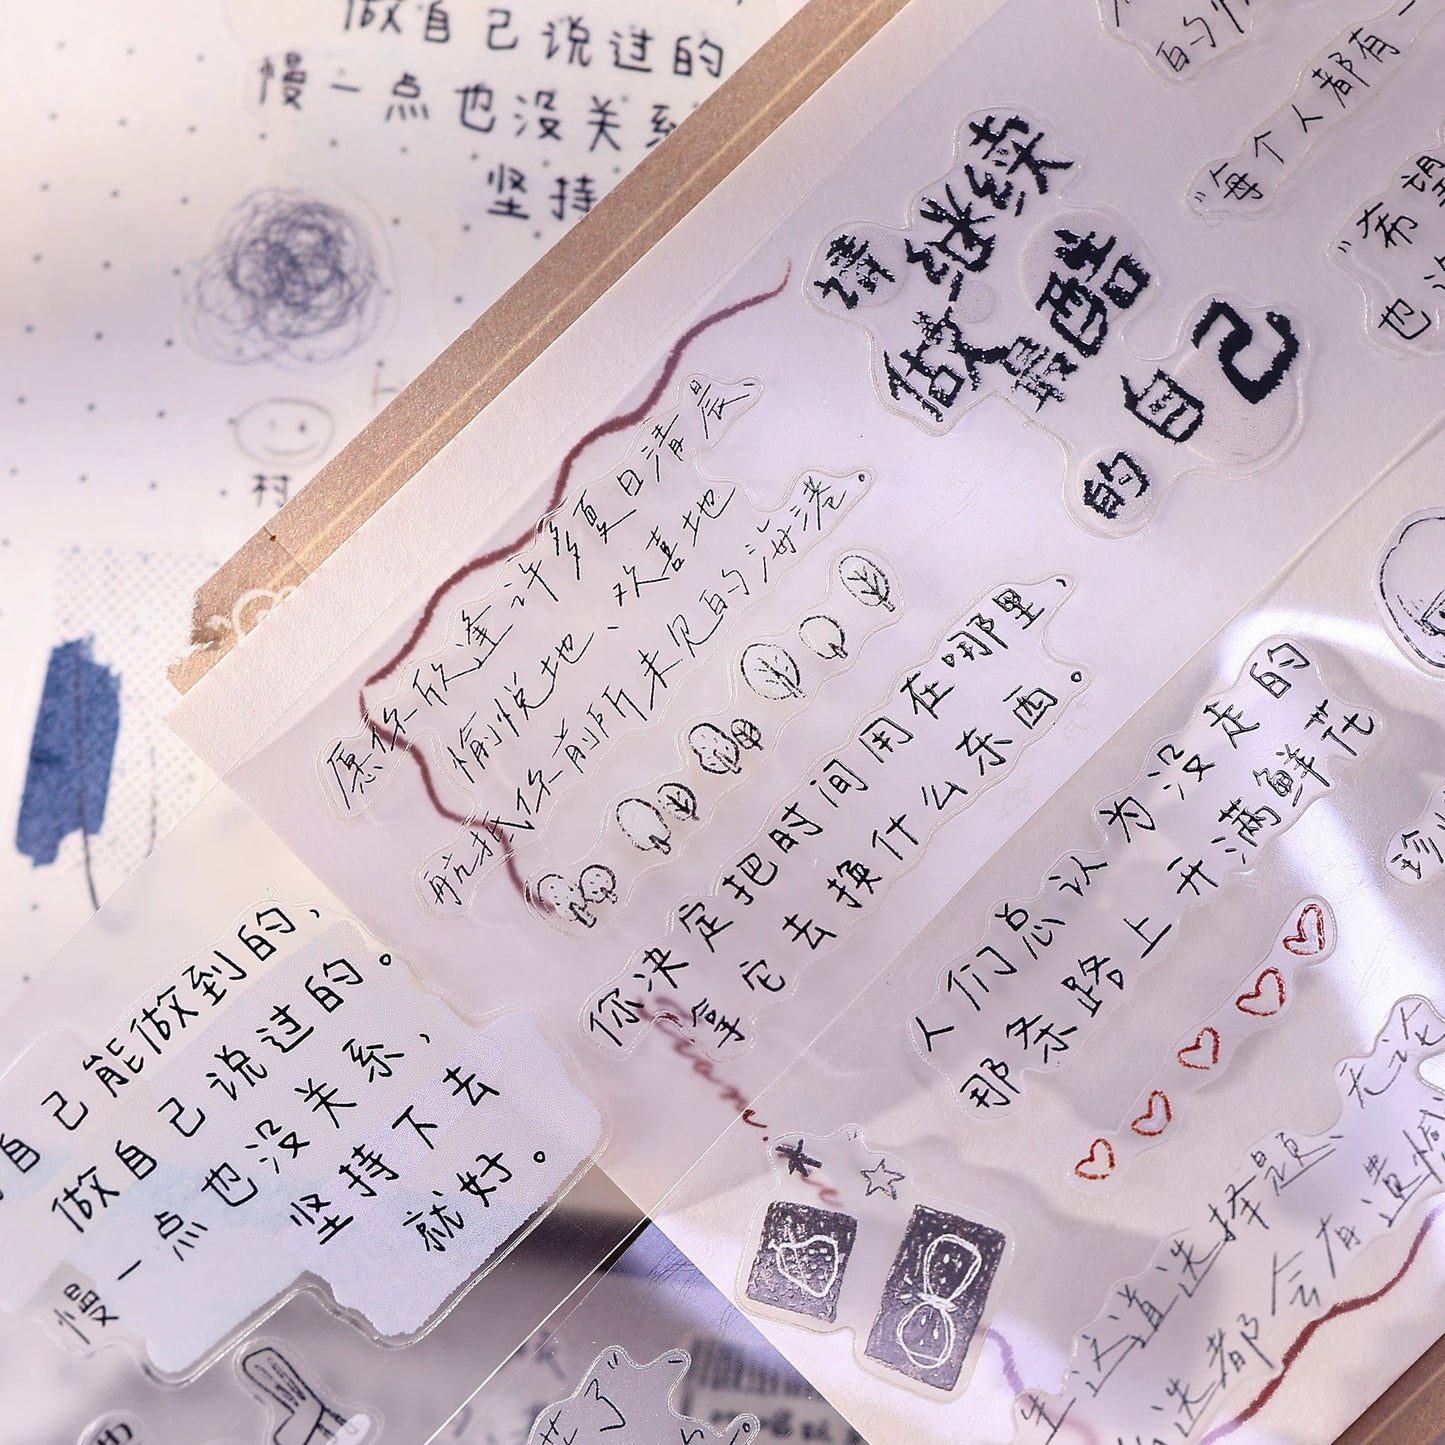 做自己说过的
慢一点也没关系
坚持
村
的
每个人都有一
"希望
也没
请继续
做最酷
的自己
愿你欣逢许多夏日清晨,
愉悦地、欢喜地
航抵你前所未见的海港。
你决定把时间用在哪里,
拿它去换什么东西。
人们总以为没走的
那条路上开满鲜花
珍惜
自己能做到的,
做自己说过的。
慢一点也没关系,
坚持下去
就好。
无论
生这道选择题、
选都会有遗憾